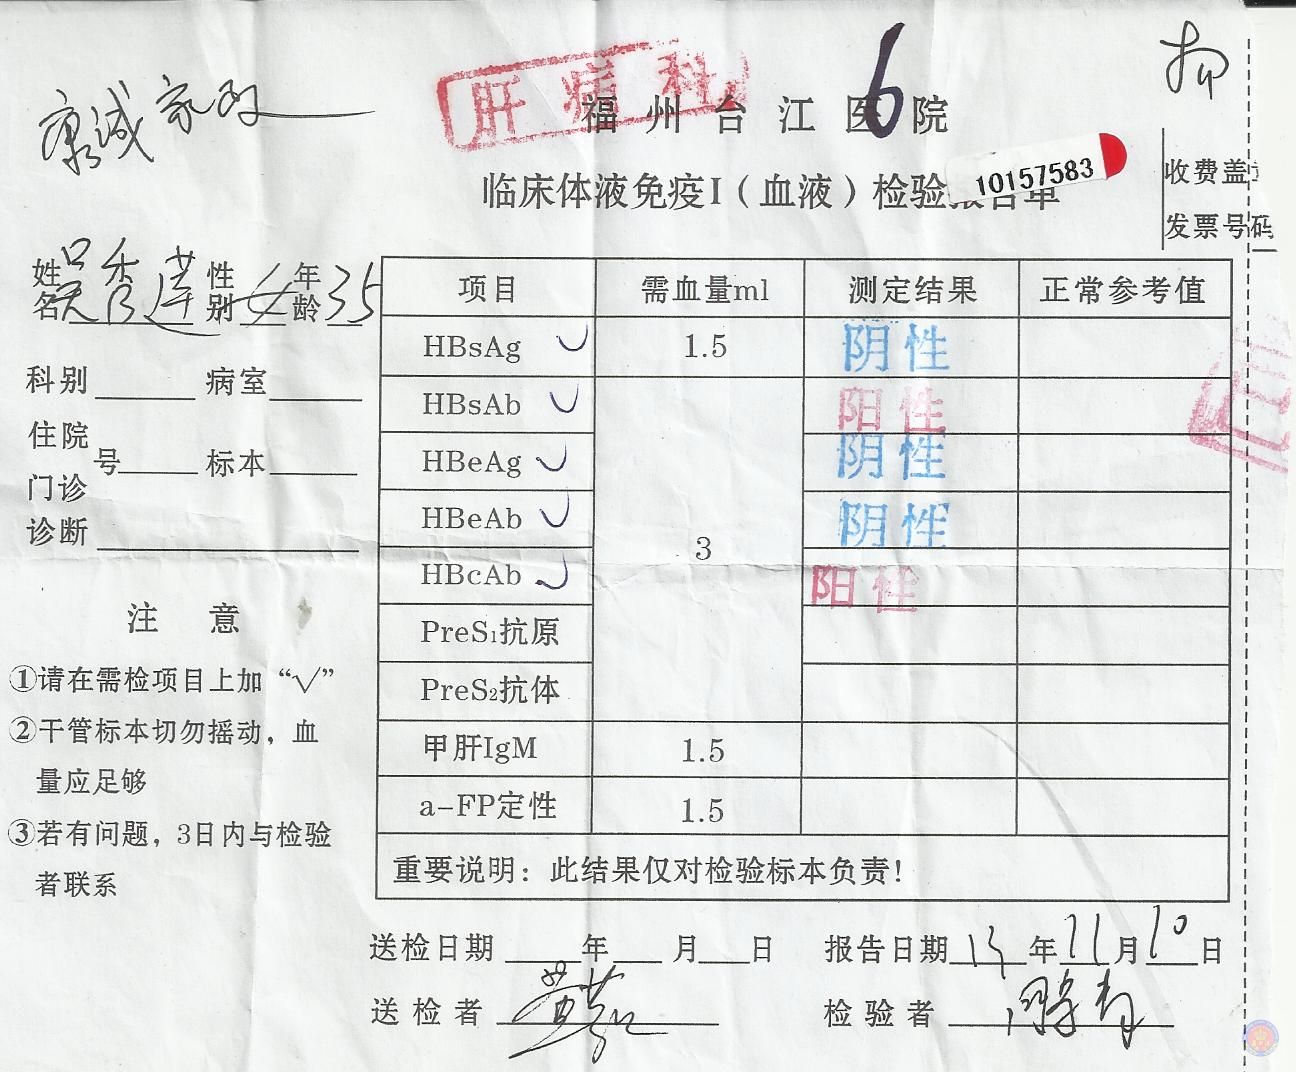 康诚家政
肝病科
6
福州台江医院
临床体液免疫I（血液）检验报告单
10157583
收费盖
发票号码
姓名 吴秀莲 性别 女 年龄 35
科别 病室
住院号 标本
门诊
诊断
注 意
①请在需检项目上加“√”
②干管标本切勿摇动，血
量应足够
③若有问题，3日内与检验
者联系
项目 需血量ml 测定结果 正常参考值
HBsAg 1.5 阴性
HBsAb 阳性
HBeAg 阴性
HBeAb 3 阴性
HBcAb 阳性
PreS₁抗原
PreS₂抗体
甲肝IgM 1.5
a-FP定性 1.5
重要说明：此结果仅对检验标本负责！
送检日期 年 月 日 报告日期 13 年 11 月 10 日
送检者 检验者